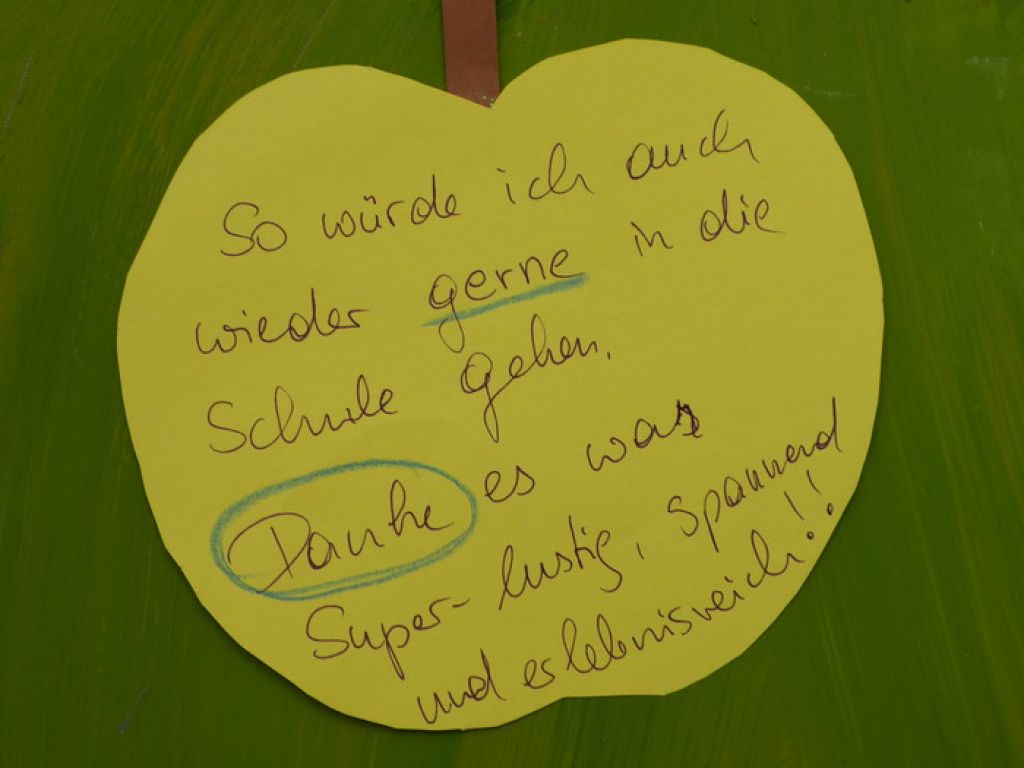 So würde ich auch
wieder gerne in die
Schule gehen.
Danke es war
Super-lustig, spannend
und erlebnisreich!!